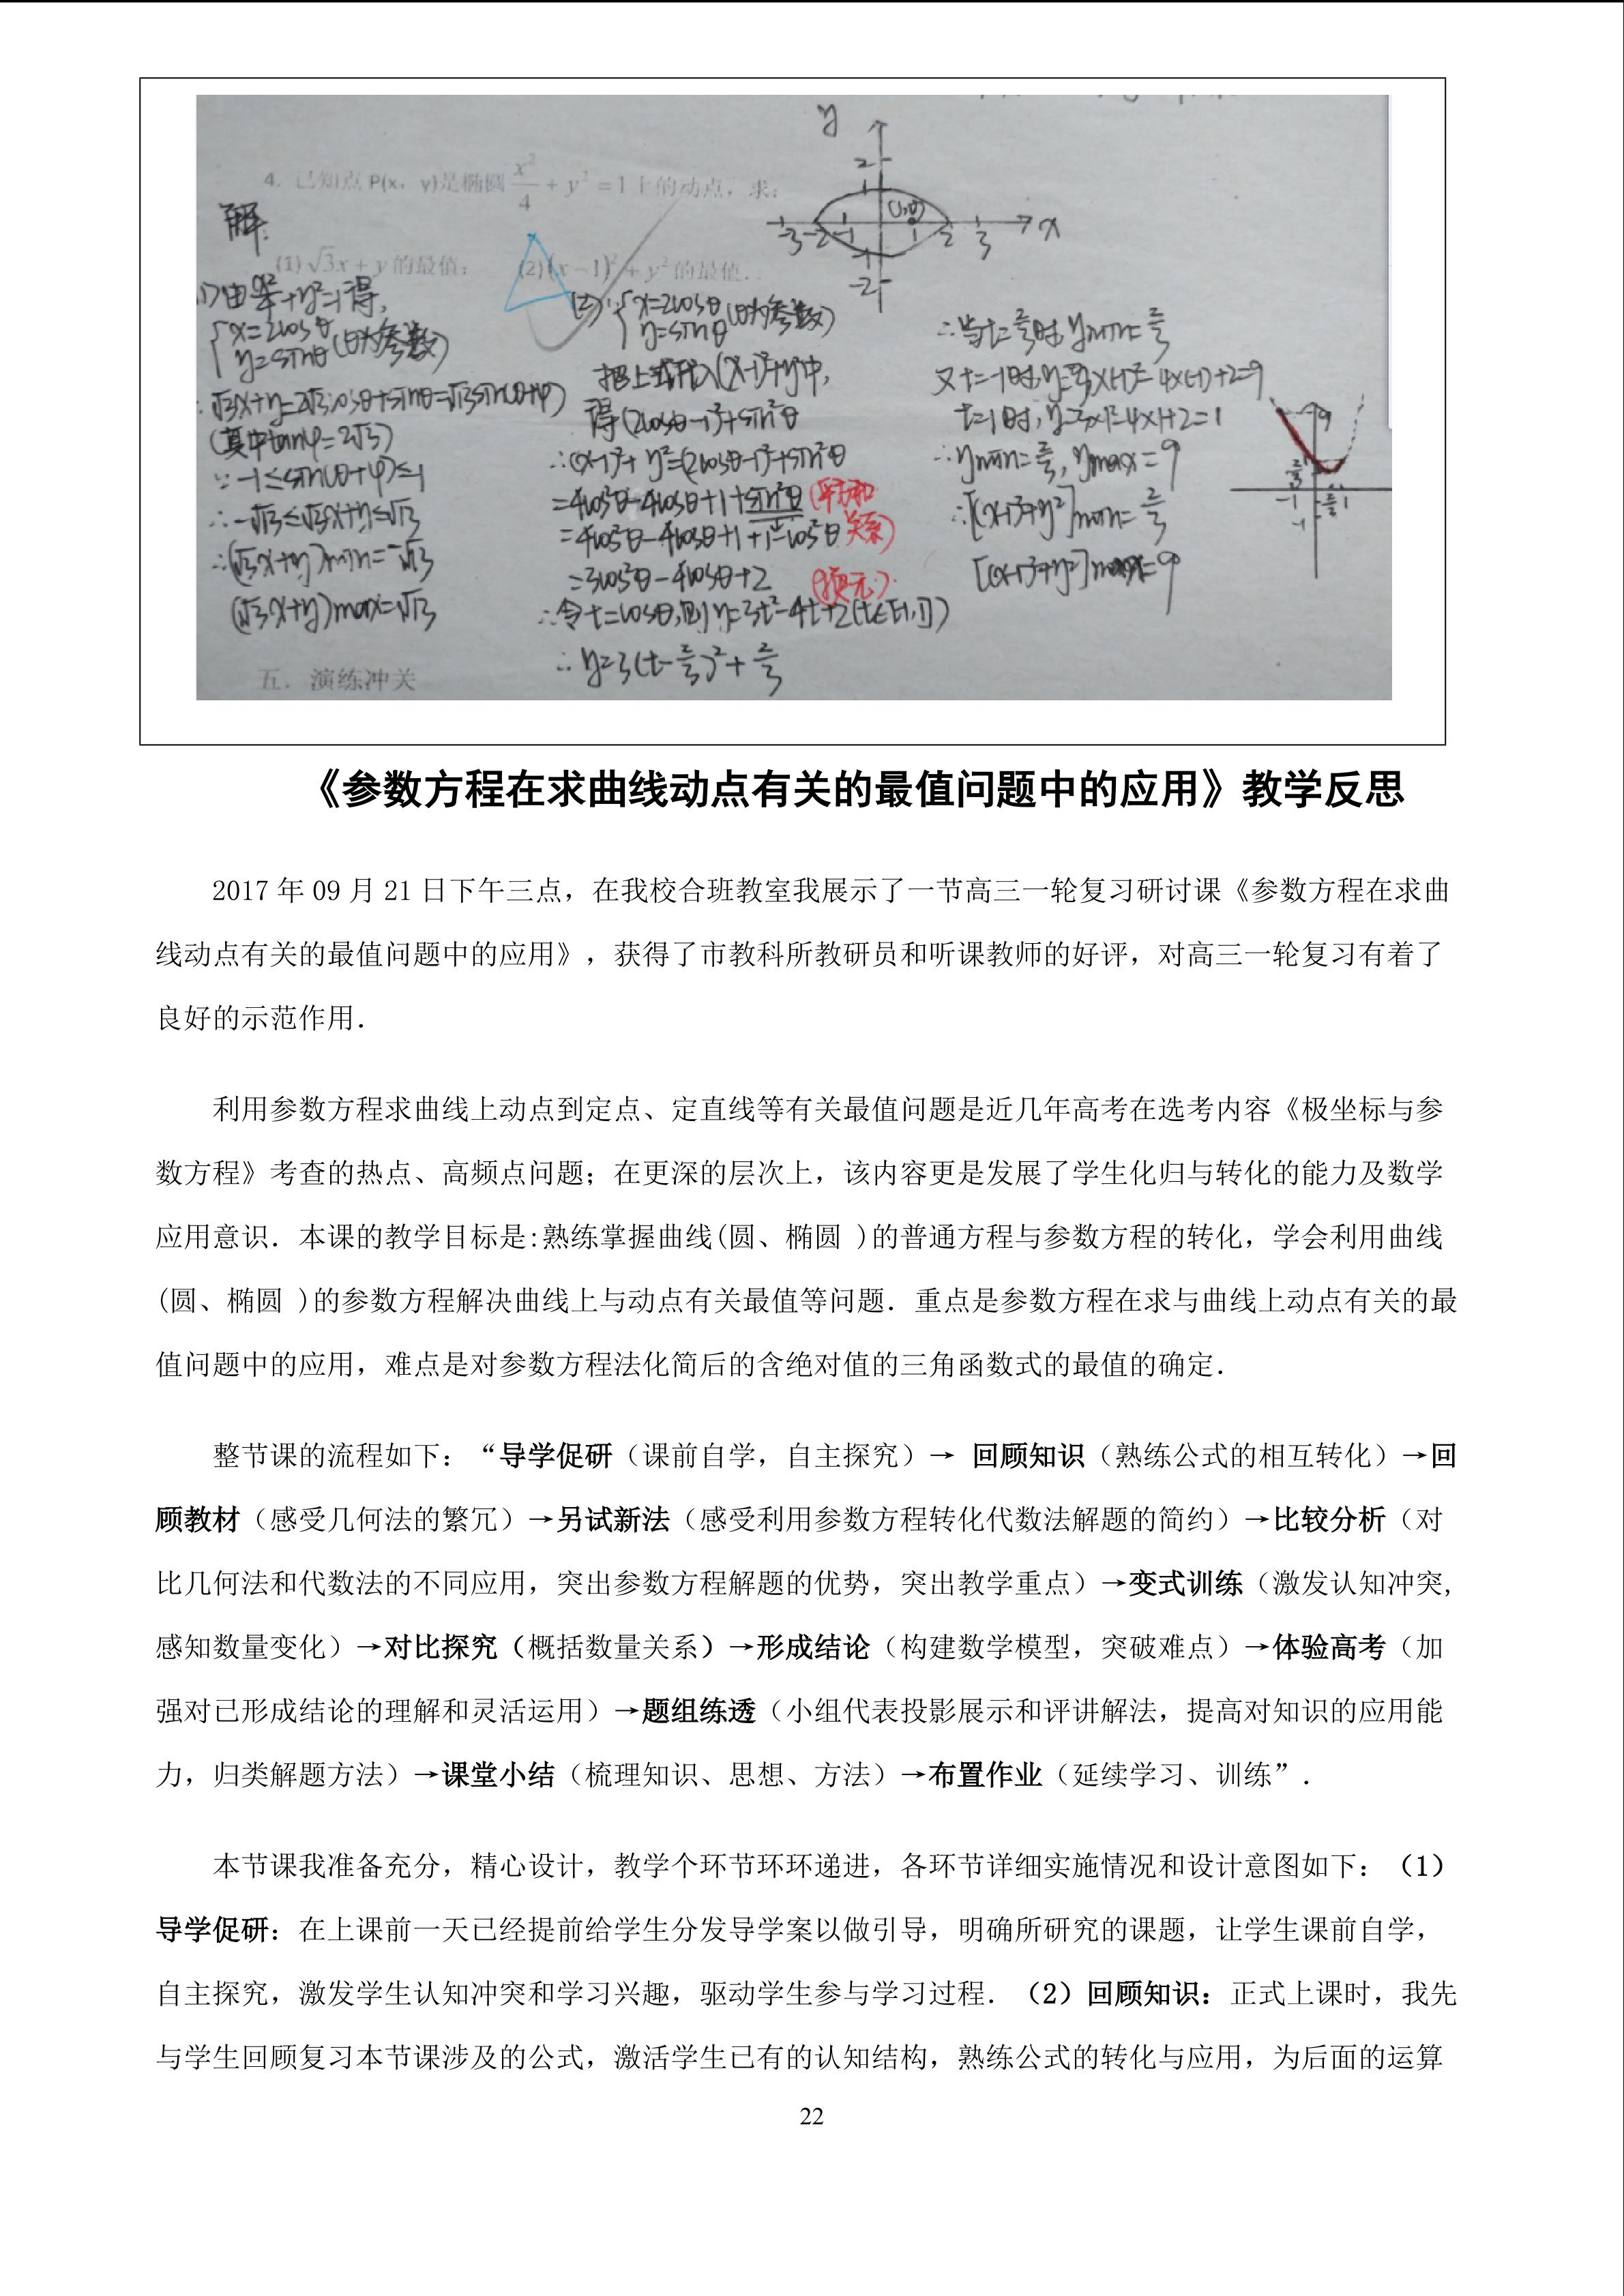 4. 已知点 P(x, y)是椭圆 x²/4 + y² = 1 上的动点, 求:
解:
(1) √3x + y 的最值; (2) (x−1)² + y² 的最值.
(1)由x²/4+y²=1得,
{x=2cosθ
y=sinθ (θ为参数)
∴√3x+y=2√3cosθ+sinθ=√13sin(θ+φ)
(其中tanφ=2√3)
∵-1≤sin(θ+φ)≤1
∴-√13≤√3x+y≤√13
∴(√3x+y)min=-√13
(√3x+y)max=√13
(2)∵{x=2cosθ
y=sinθ (θ为参数)
把上式代入(x-1)²+y²中,
得(2cosθ-1)²+sin²θ
∴(x-1)²+y²=(2cosθ-1)²+sin²θ
=4cos²θ-4cosθ+1+sin²θ (平方和
=4cos²θ-4cosθ+1+1-cos²θ 关系)
=3cos²θ-4cosθ+2 (换元)
∴令t=cosθ,则y=3t²-4t+2(t∈[-1,1])
∴y=3(t-2/3)²+2/3
∴当t=2/3时,ymin=2/3
又t=-1时,y=3×(-1)²-4×(-1)+2=9
t=1时,y=3×1²-4×1+2=1
∴ymin=2/3,ymax=9
∴[(x-1)²+y²]min=2/3
[(x-1)²+y²]max=9
y
2
1
(1,0)
-3 -2 -1 1 2 3 x
-1
-2
9
2/3
-1 2/3 1
-1
五. 演练冲关
《参数方程在求曲线动点有关的最值问题中的应用》教学反思
2017 年 09 月 21 日下午三点，在我校合班教室我展示了一节高三一轮复习研讨课《参数方程在求曲
线动点有关的最值问题中的应用》，获得了市教科所教研员和听课教师的好评，对高三一轮复习有着了
良好的示范作用．
利用参数方程求曲线上动点到定点、定直线等有关最值问题是近几年高考在选考内容《极坐标与参
数方程》考查的热点、高频点问题；在更深的层次上，该内容更是发展了学生化归与转化的能力及数学
应用意识．本课的教学目标是:熟练掌握曲线(圆、椭圆 )的普通方程与参数方程的转化，学会利用曲线
(圆、椭圆 )的参数方程解决曲线上与动点有关最值等问题．重点是参数方程在求与曲线上动点有关的最
值问题中的应用，难点是对参数方程法化简后的含绝对值的三角函数式的最值的确定．
整节课的流程如下：“导学促研（课前自学，自主探究）→ 回顾知识（熟练公式的相互转化）→回
顾教材（感受几何法的繁冗）→另试新法（感受利用参数方程转化代数法解题的简约）→比较分析（对
比几何法和代数法的不同应用，突出参数方程解题的优势，突出教学重点）→变式训练（激发认知冲突，
感知数量变化）→对比探究（概括数量关系）→形成结论（构建数学模型，突破难点）→体验高考（加
强对已形成结论的理解和灵活运用）→题组练透（小组代表投影展示和评讲解法，提高对知识的应用能
力，归类解题方法）→课堂小结（梳理知识、思想、方法）→布置作业（延续学习、训练”．
本节课我准备充分，精心设计，教学个环节环环递进，各环节详细实施情况和设计意图如下：（1）
导学促研：在上课前一天已经提前给学生分发导学案以做引导，明确所研究的课题，让学生课前自学，
自主探究，激发学生认知冲突和学习兴趣，驱动学生参与学习过程．（2）回顾知识：正式上课时，我先
与学生回顾复习本节课涉及的公式，激活学生已有的认知结构，熟练公式的转化与应用，为后面的运算
22